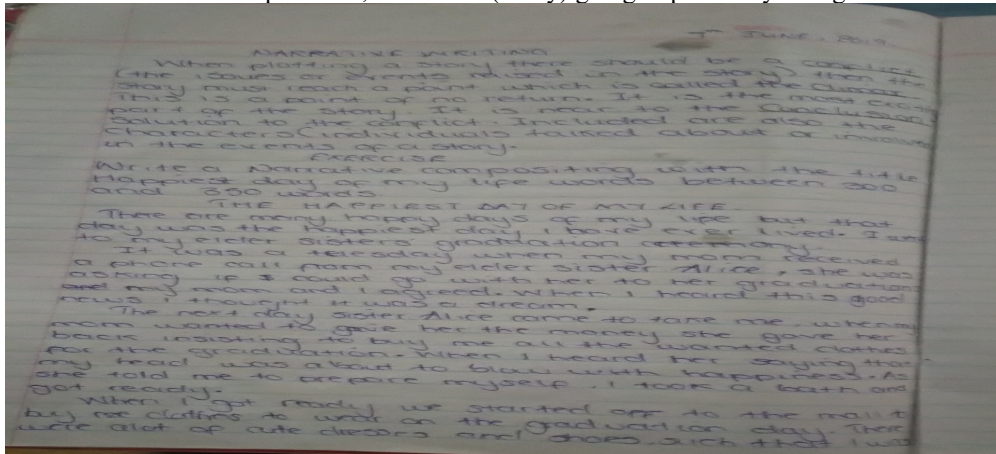 7th JUNE, 2019.
NARRATIVE WRITING
When plotting a story there should be a conflict
(the issues or events raised in the story) then the
story must reach a point which is called the climax
This is a point of no return. It is the most exciting
part of the story. It is near to the conclusion/
solution to the conflict. Included are also the
characters (individuals talked about or involved
in the events of a story.
EXERCISE
Write a Narrative compositing with the title
Happiest day of my life words between 300
and 350 words
THE HAPPIEST DAY OF MY LIFE
There are many happy days of my life but that
day was the happiest day I have ever lived. I
to my elder sisters graduation ceremony.
It was a tuesday when my mom received
a phone call from my elder sister Alice, she was
asking if I could go with her to her graduation
and my mom and I agreed. When I heard this good
news i thought it was a dream.
The next day sister Alice came to take me. When
mom wanted to gave her the money she gave her
back insisting to buy me all the wanted clothes
for the graduation. When I heard her saying that
my head was about to blow with happiness. As
she told me to prepare myself. I took a bath and
got ready.
When I got ready we started off to the mall t
buy me clothes to wear on the graduation day. There
were alot of cute dresses and shoes such that I was